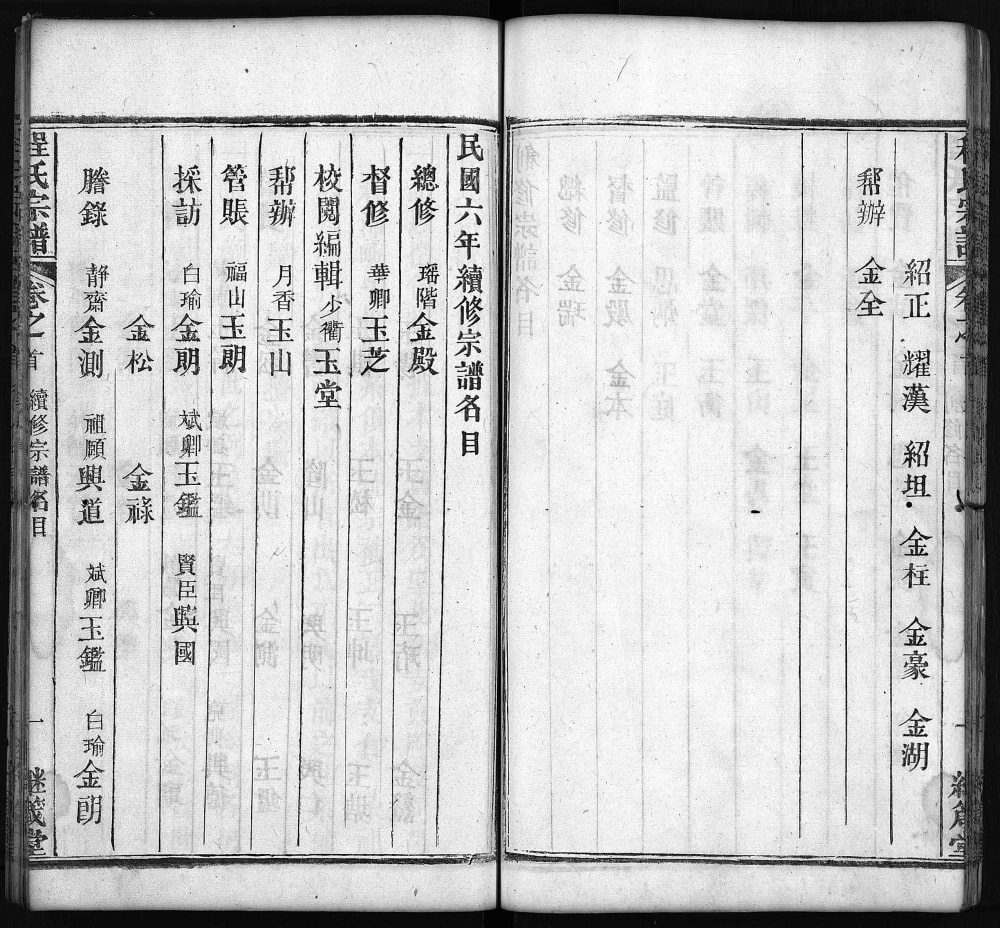 紹正 耀漢 紹坦 金柱 金豪 金湖
幇辦 金全
民國六年續修宗譜名目
總修 瑶階金殿
督修 華卿玉芝
校閱編輯 少衢玉堂
幇辦 月香玉山
管賬 福山玉朗
採訪 白瑜金朗 斌卿玉鑑 賢臣興國
金松 金祿
謄錄 靜齋金測 祖願興道 斌卿玉鑑 白瑜金朗
程氏宗譜 卷之首 續修宗譜名目 一 繼箴堂